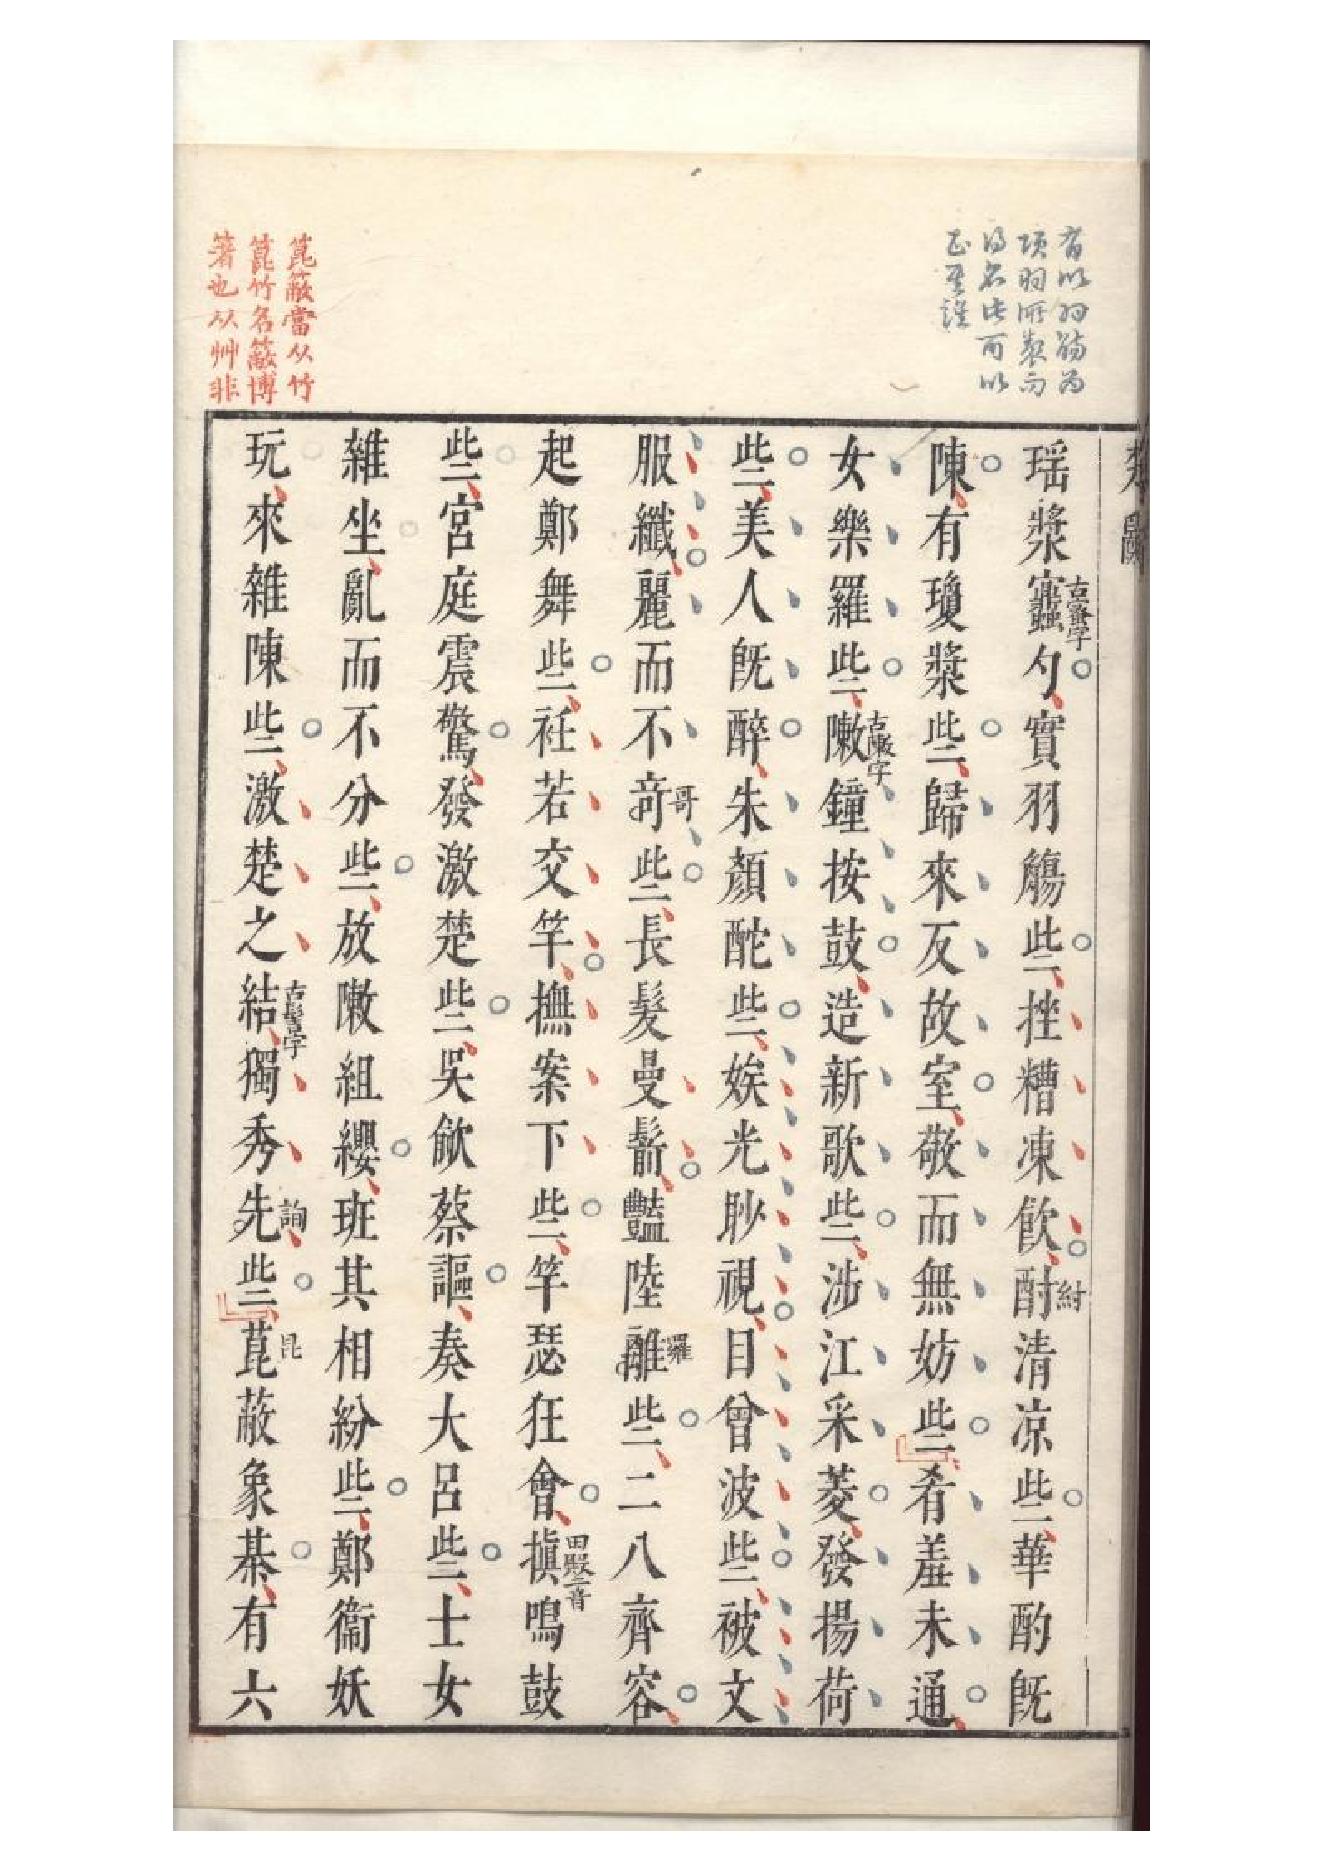 有以羽觴為
項羽所製而
得名此可以
正其謬
瑤漿蠠勺實羽觴些挫糟凍飲酎清凉些華酌旣
古蜜字
紂
陳有瓊漿些歸來反故室敬而無妨些肴羞未通
女樂羅些敶鐘按鼓造新歌些涉江采菱發揚荷
古陳字
些美人旣醉朱顏酡些娭光眇視目曾波些被文
服纖麗而不奇些長髮曼鬋豔陸離些二八齊容
哥
羅
起鄭舞些衽若交竿撫案下些竽瑟狂會搷鳴鼓
田殿二音
些宮庭震驚發激楚些吳歈蔡謳奏大呂些士女
雜坐亂而不分些放敶組纓班其相紛些鄭衞妖
玩來雜陳些激楚之結獨秀先些菎蔽象棊有六
古髻字
詢
昆
箟簬當从竹
箟竹名簬博
箸也从艸非